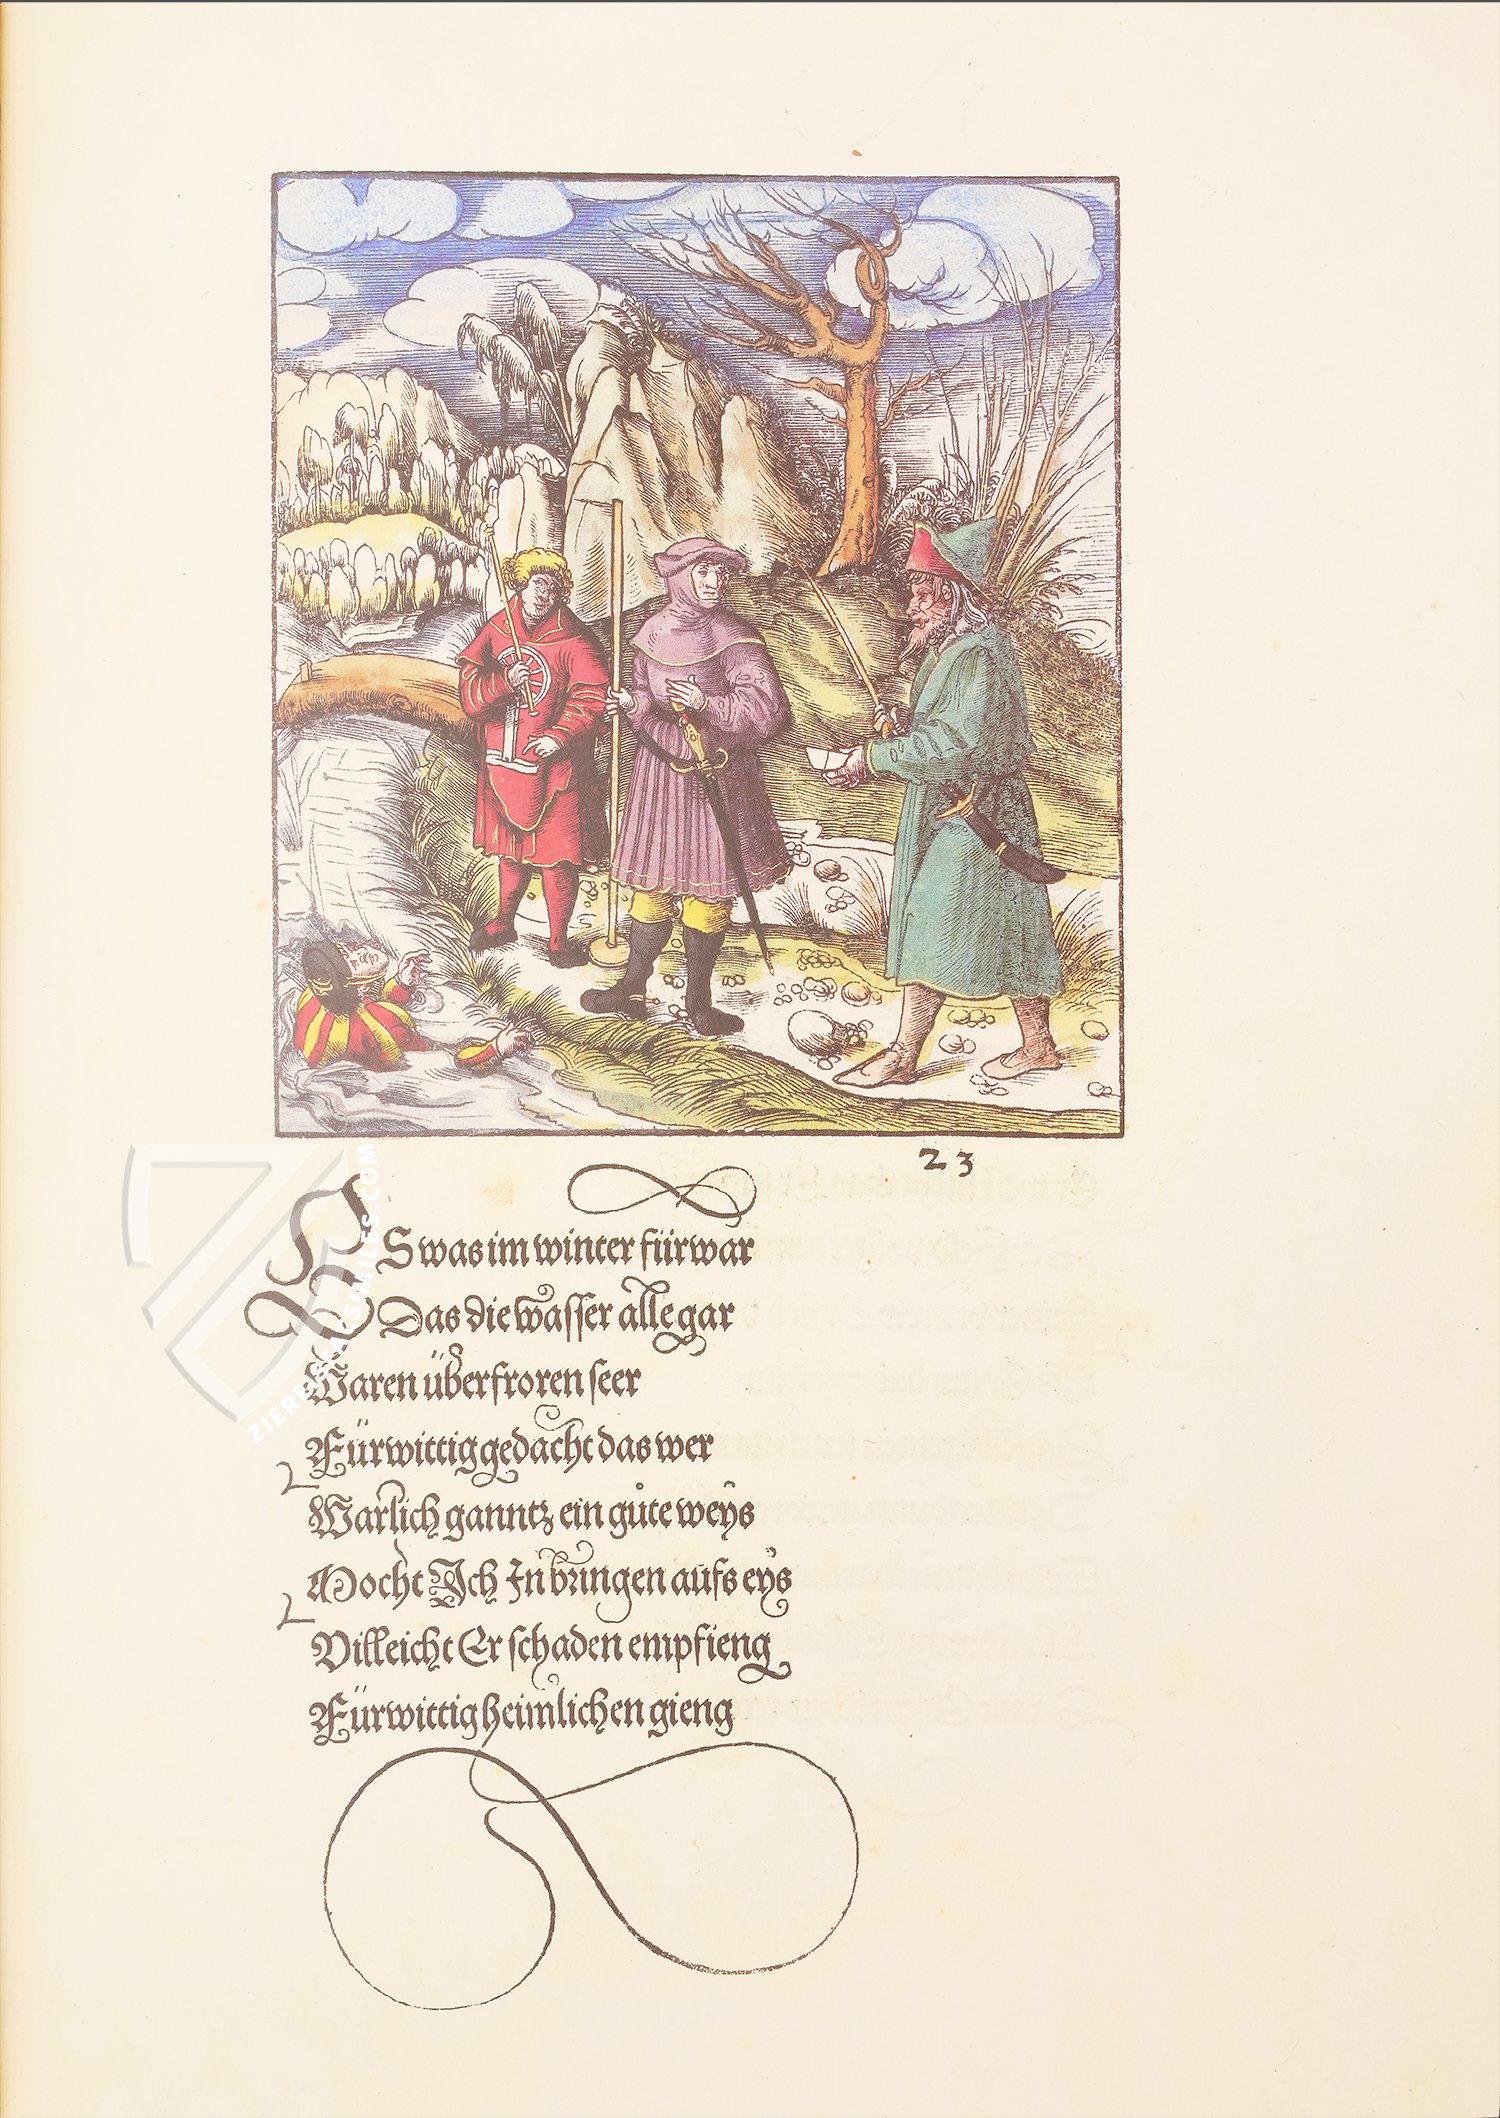 23
ES was im winter fürwar
Das die wasser alle gar
Waren überfroren seer
Fürwittig gedacht das wer
Warlich ganntz ein gůte weys
Mocht Ich In bringen aufs eys
Villeicht Er schaden empfieng
Fürwittig heimlichen gieng
ZIEREIS FACSIMILES.COM